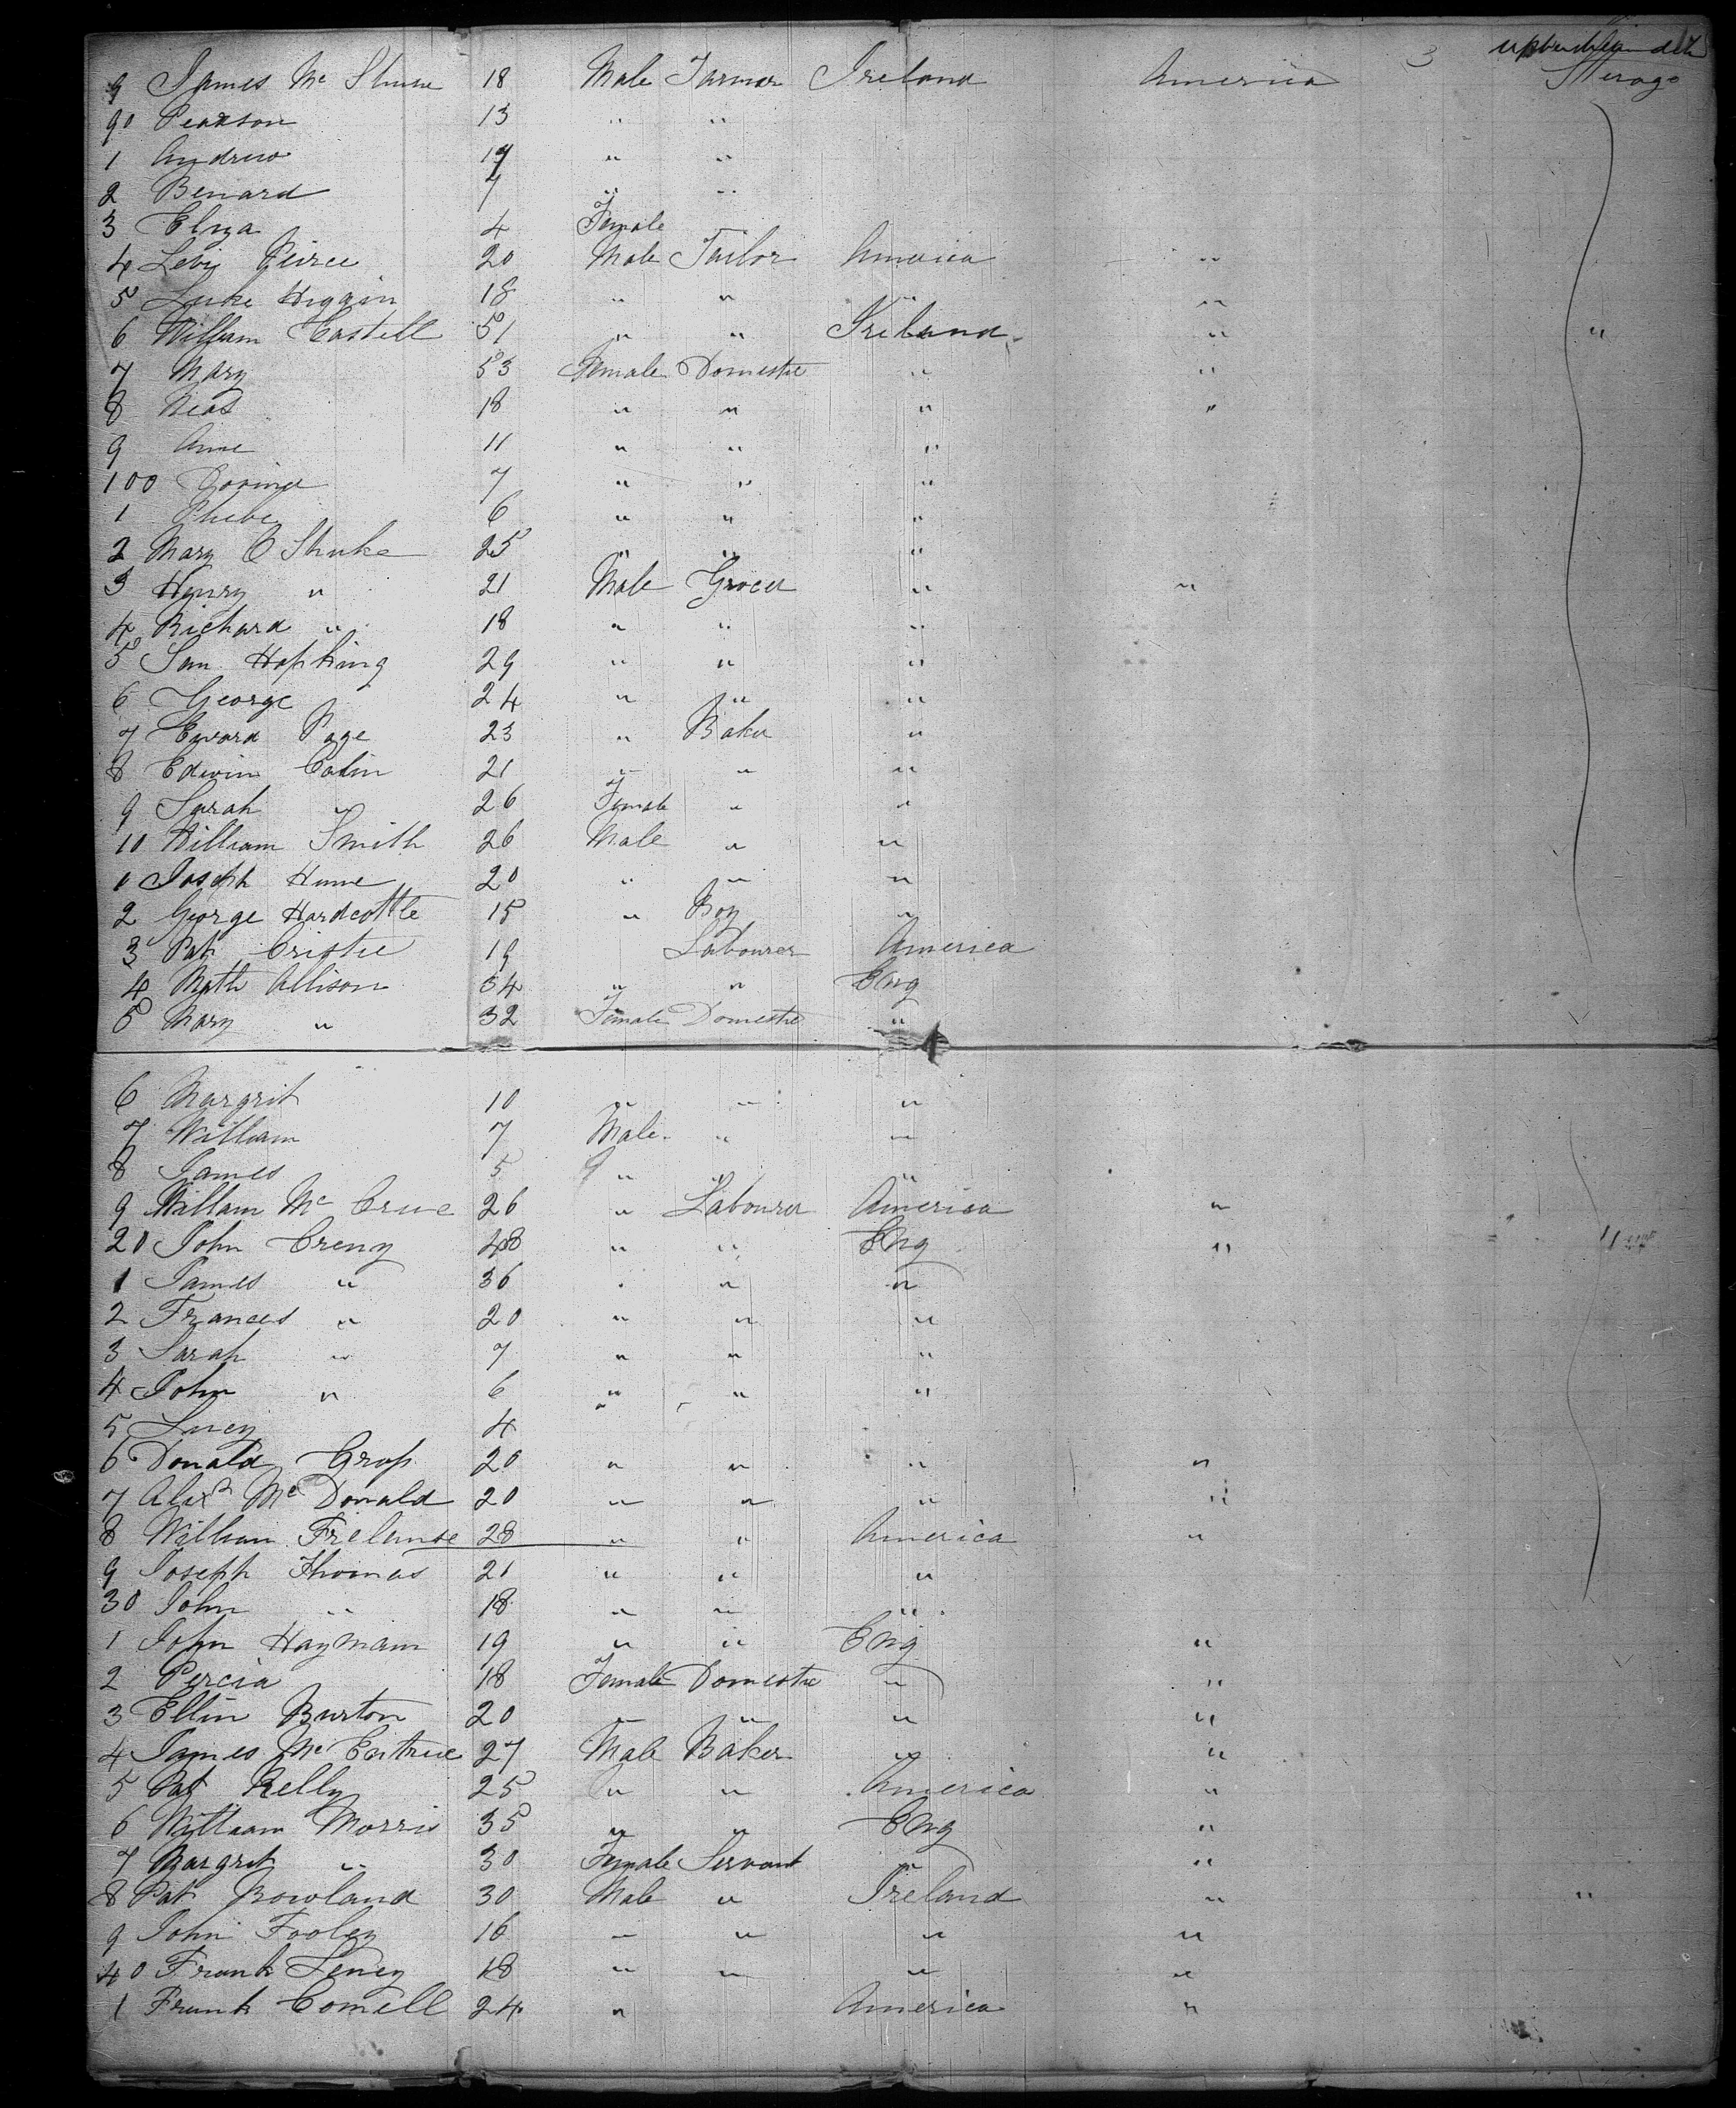 3
9 James Mc 18 Male Farmer Ireland America
90 Pearson 13 " "
1 Andrew " "
2 Benard 7 " "
3 Eliza 4 Female
4 Levi Peirce 20 Male Tailor America "
5 Luke Higgin 18 " " " "
6 William Castell 51 " " Ireland " "
7 Mary 53 Female Domestic " "
8 18 " " " "
9 Anne 11 " " "
100 7 " " "
1 Phebe 6 " " "
2 Mary C 25 " " "
3 Henry " 21 Male Grocer " "
4 Richard " 18 " " "
5 Sam Hopking 29 " " "
6 George 24 " " "
7 Edward Page 23 " Baker "
8 Edwin Catin 21 " " "
9 Sarah " 26 Female " "
10 William Smith 26 Male " "
1 Joseph Hume 20 " " "
2 George Hardcottle 15 " Boy "
3 Pat Cristie 19 Labourer America
4 Math Allison 34 " " Eng
5 Mary " 32 Female Domestic "
6 Margrit 10 " " "
7 William 7 Male " "
8 James 5 " " "
9 William Mc Crue 26 " Labourer America "
20 John Creny 48 " " Eng "
1 James " 36 " " "
2 Frances " 20 " " "
3 Sarah " 7 " " "
4 John " 6 " " "
5 Lucy 4
6 Donald Gross 20 " " " "
7 Alexr Mc Donald 20 " " " "
8 William 28 " " America "
9 Joseph Thomas 21 " " "
30 John " 18 " " "
1 John Haymam 19 " " Eng "
2 Percia 18 Female Domestic " "
3 Ellin Burton 20 " " " "
4 James Mc 27 Male Baker " "
5 Pat Kelly 25 " " America "
6 William Morris 35 " " Eng "
7 Margrit " 30 Female Servant " "
8 Pat Rowland 30 Male " Ireland " "
9 John Fooley 16 " " " "
40 Frank Feney 18 " " " "
1 Frank Comell 24 " America "